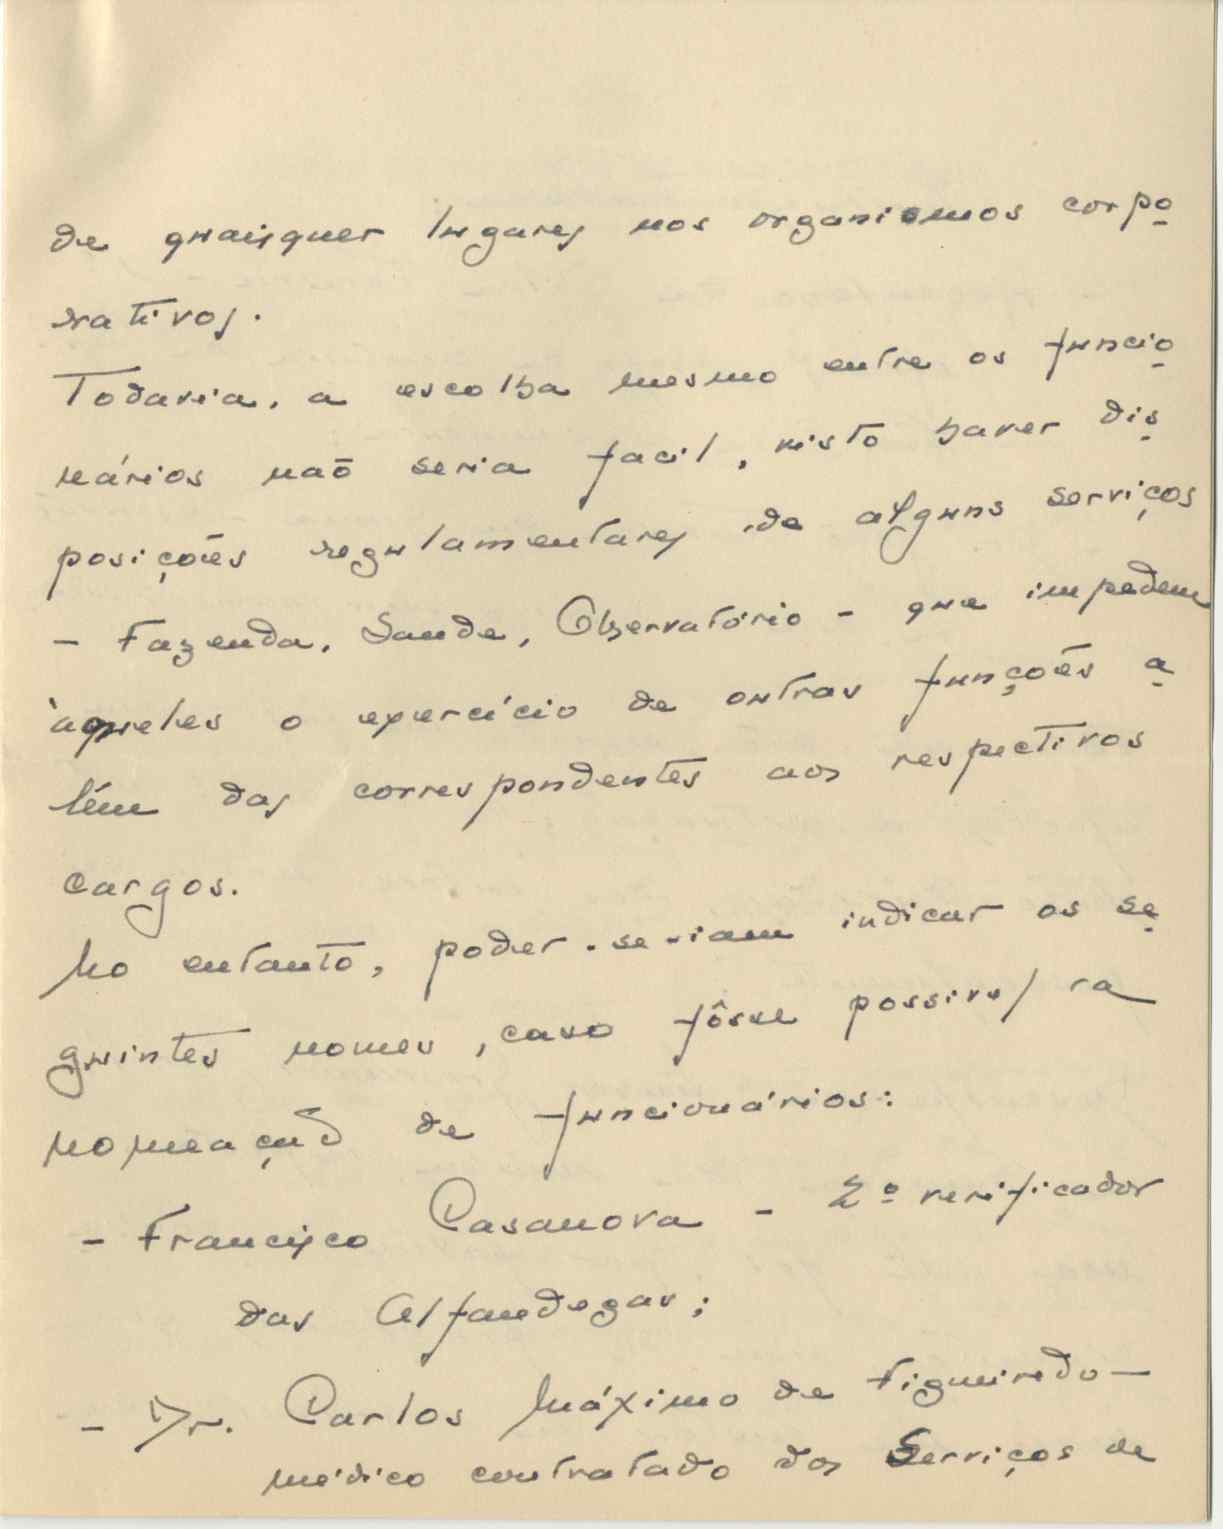 de quaisquer lugares nos organismos corpo
rativos.
Todavia, a escolha mesmo entre os funcio
nários não seria facil, visto haver dis
posições regulamentares de alguns serviços
- Fazenda, Saude, Observatório - que impedem
àqueles o exercício de outras funções a
lém das correspondentes aos respectivos
cargos.
No entanto, poder-se-iam indicar os se
guintes nomes, caso fôsse possivel a
nomeação de funcionários:
- Francisco Casanova - 2º verificador
das Alfandegas;
- Dr. Carlos Máximo de Figueiredo -
médico contratado dos Serviços de